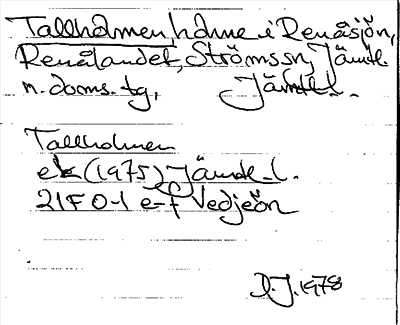 Tallholmen, holme i Renåsjön,
Renålandet, Ströms sn, Jämtl.
n. doms. tg, Jämtl l.
Tallholmen
ek (1975) Jämtl. l.
21F 0-1 e-f Vedjeön
D.J. 1978